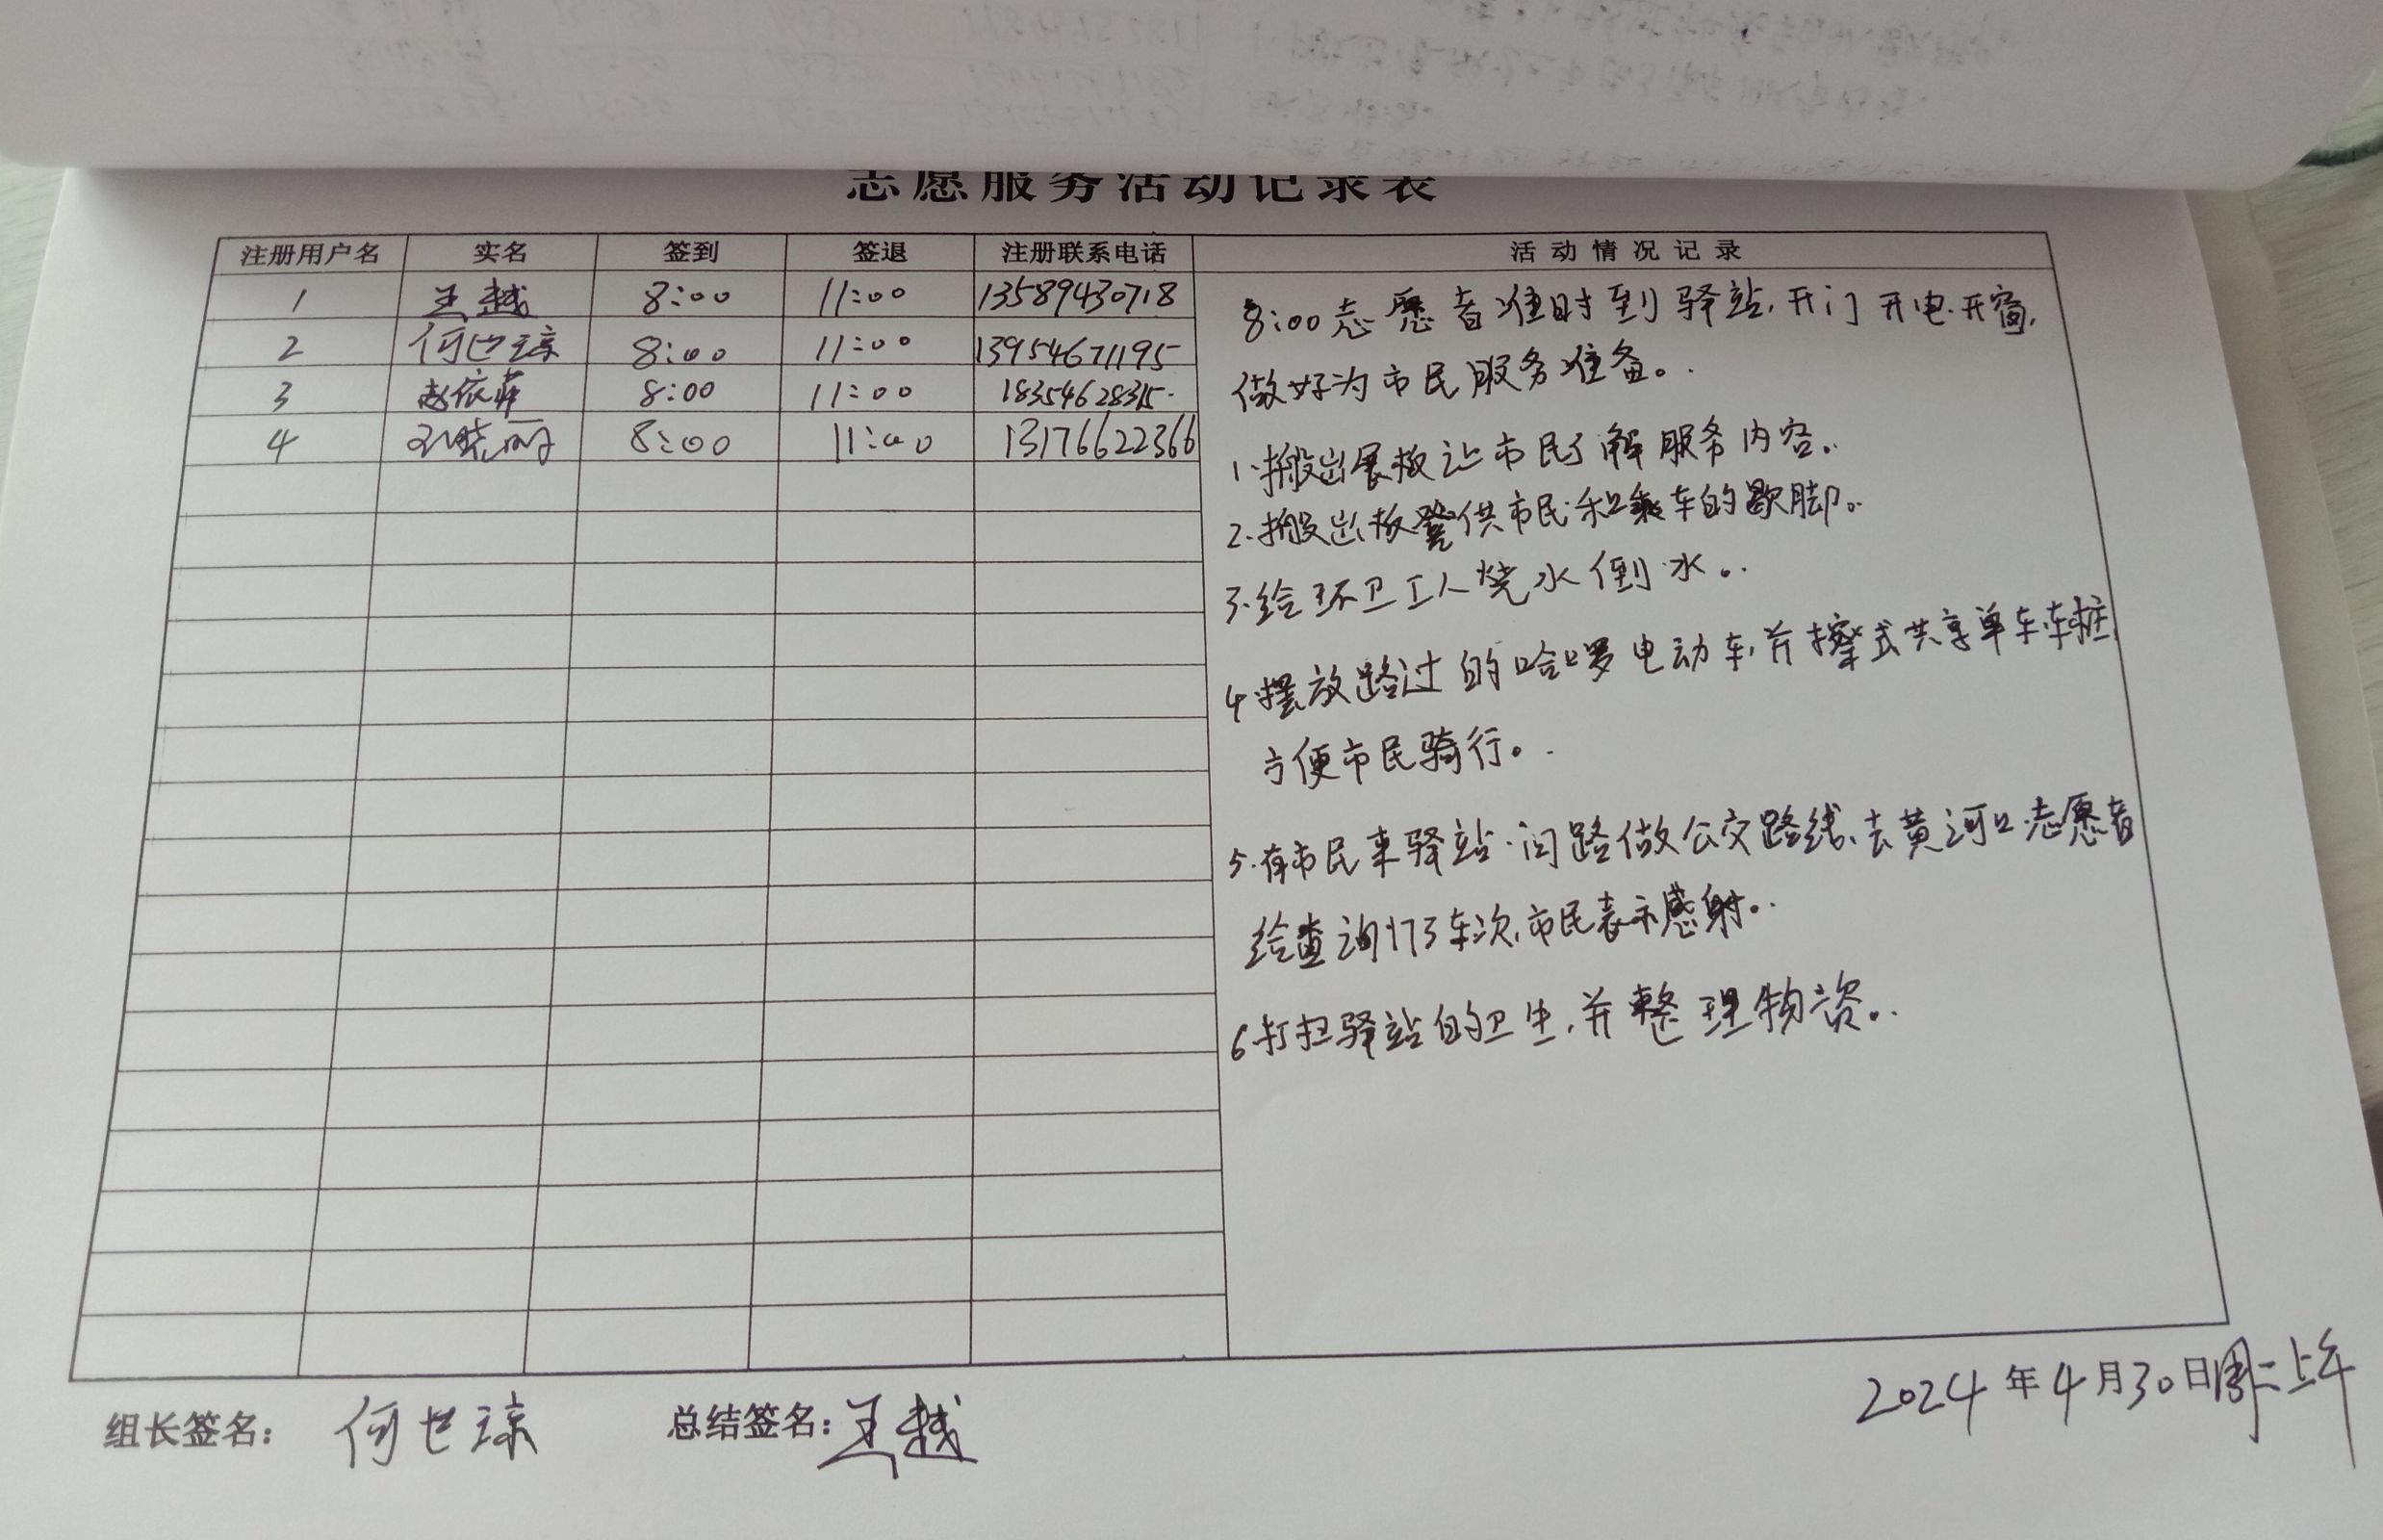 志愿服务活动记录表
注册用户名 实名 签到 签退 注册联系电话 活动情况记录
1 王越 8:00 11:00 13589430718
2 何世琼 8:00 11:00 13954671195
3 赵依菲 8:00 11:00 18354628315
4 刘晓丽 8:00 11:00 13176622366
8:00志愿者准时到驿站,开门开电.开窗,
做好为市民服务准备。
1.搬出展板让市民了解服务内容。
2.搬出板凳供市民和乘车的歇脚。
3.给环卫工人烧水倒水。
4.摆放路过的哈啰电动车,并擦式共享单车车桩,
方便市民骑行。
5.有市民来驿站.问路做公交路线、去黄河口.志愿者
给查询173车次,市民表示感射。
6.打扫驿站的卫生,并整理物资。
组长签名: 何世琼 总结签名: 王越
2024年4月30日周二上午